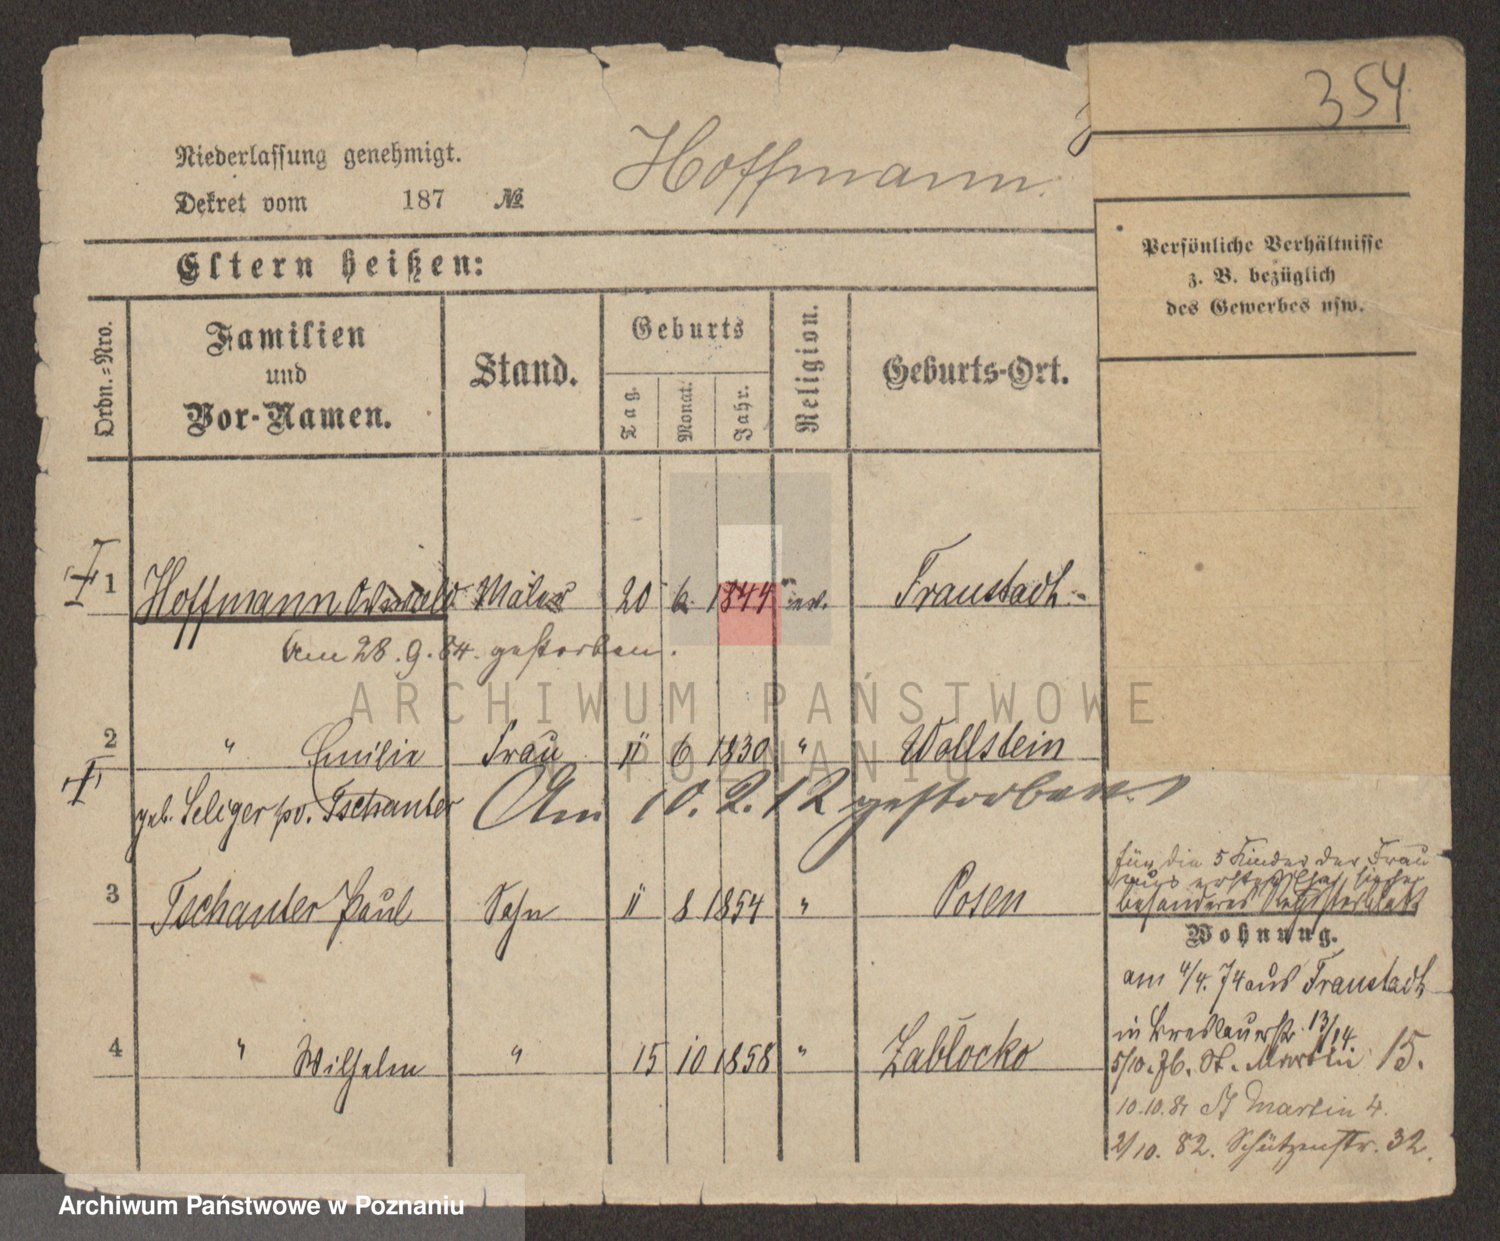 354
Niederlassung genehmigt.
Hoffmann.
Dekret vom 187 №
Eltern heißen:
Persönliche Verhältnisse
z. B. bezüglich
des Gewerbes usw.
Ordn.=Nro.
Familien
und
Vor-Namen.
Stand.
Geburts
Tag.
Monat.
Jahr.
Religion.
Geburts-Ort.
1 Hoffmann Oswald Maler 20 6 1844 ev. Fraustadt
Am 28.9.84. gestorben.
2 " Emilie Frau 11 6 1830 " Wollstein
geb. Seliger pv. Tschanter Am 10.2.12 gestorben.
3 Tschanter Paul Sohn 11 8 1854 " Posen
4 " Wilhelm " 15 10 1858 " Zablocko
für die 5 Kinder der Frau
aus erster Ehe
besonderes Registerblatt
Wohnung.
am 4/4. 74 aus Fraustadt
in Breslauerstr. 13/14.
5/10. 76. St. Martin 15.
10.10.81 St Martin 4.
2/10. 82. Schützenstr. 32.
ARCHIWUM PAŃSTWOWE
W POZNANIU
Archiwum Państwowe w Poznaniu